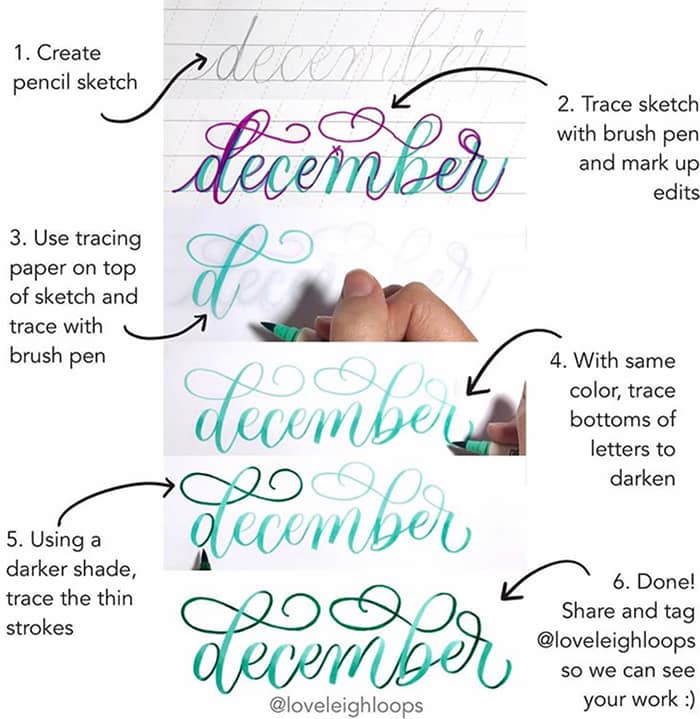 1. Create
pencil sketch
december
2. Trace sketch
with brush pen
and mark up
edits
december
3. Use tracing
paper on top
of sketch and
trace with
brush pen
december
4. With same
color, trace
bottoms of
letters to
darken
december
5. Using a
darker shade,
trace the thin
strokes
december
6. Done!
Share and tag
@loveleighloops
so we can see
your work :)
december
@loveleighloops